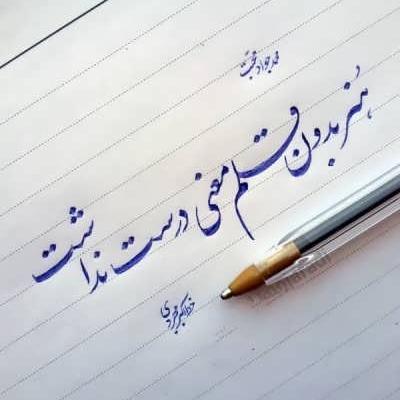 محمدجواد محبت
هنر بدون قلم معنی درست نداشت